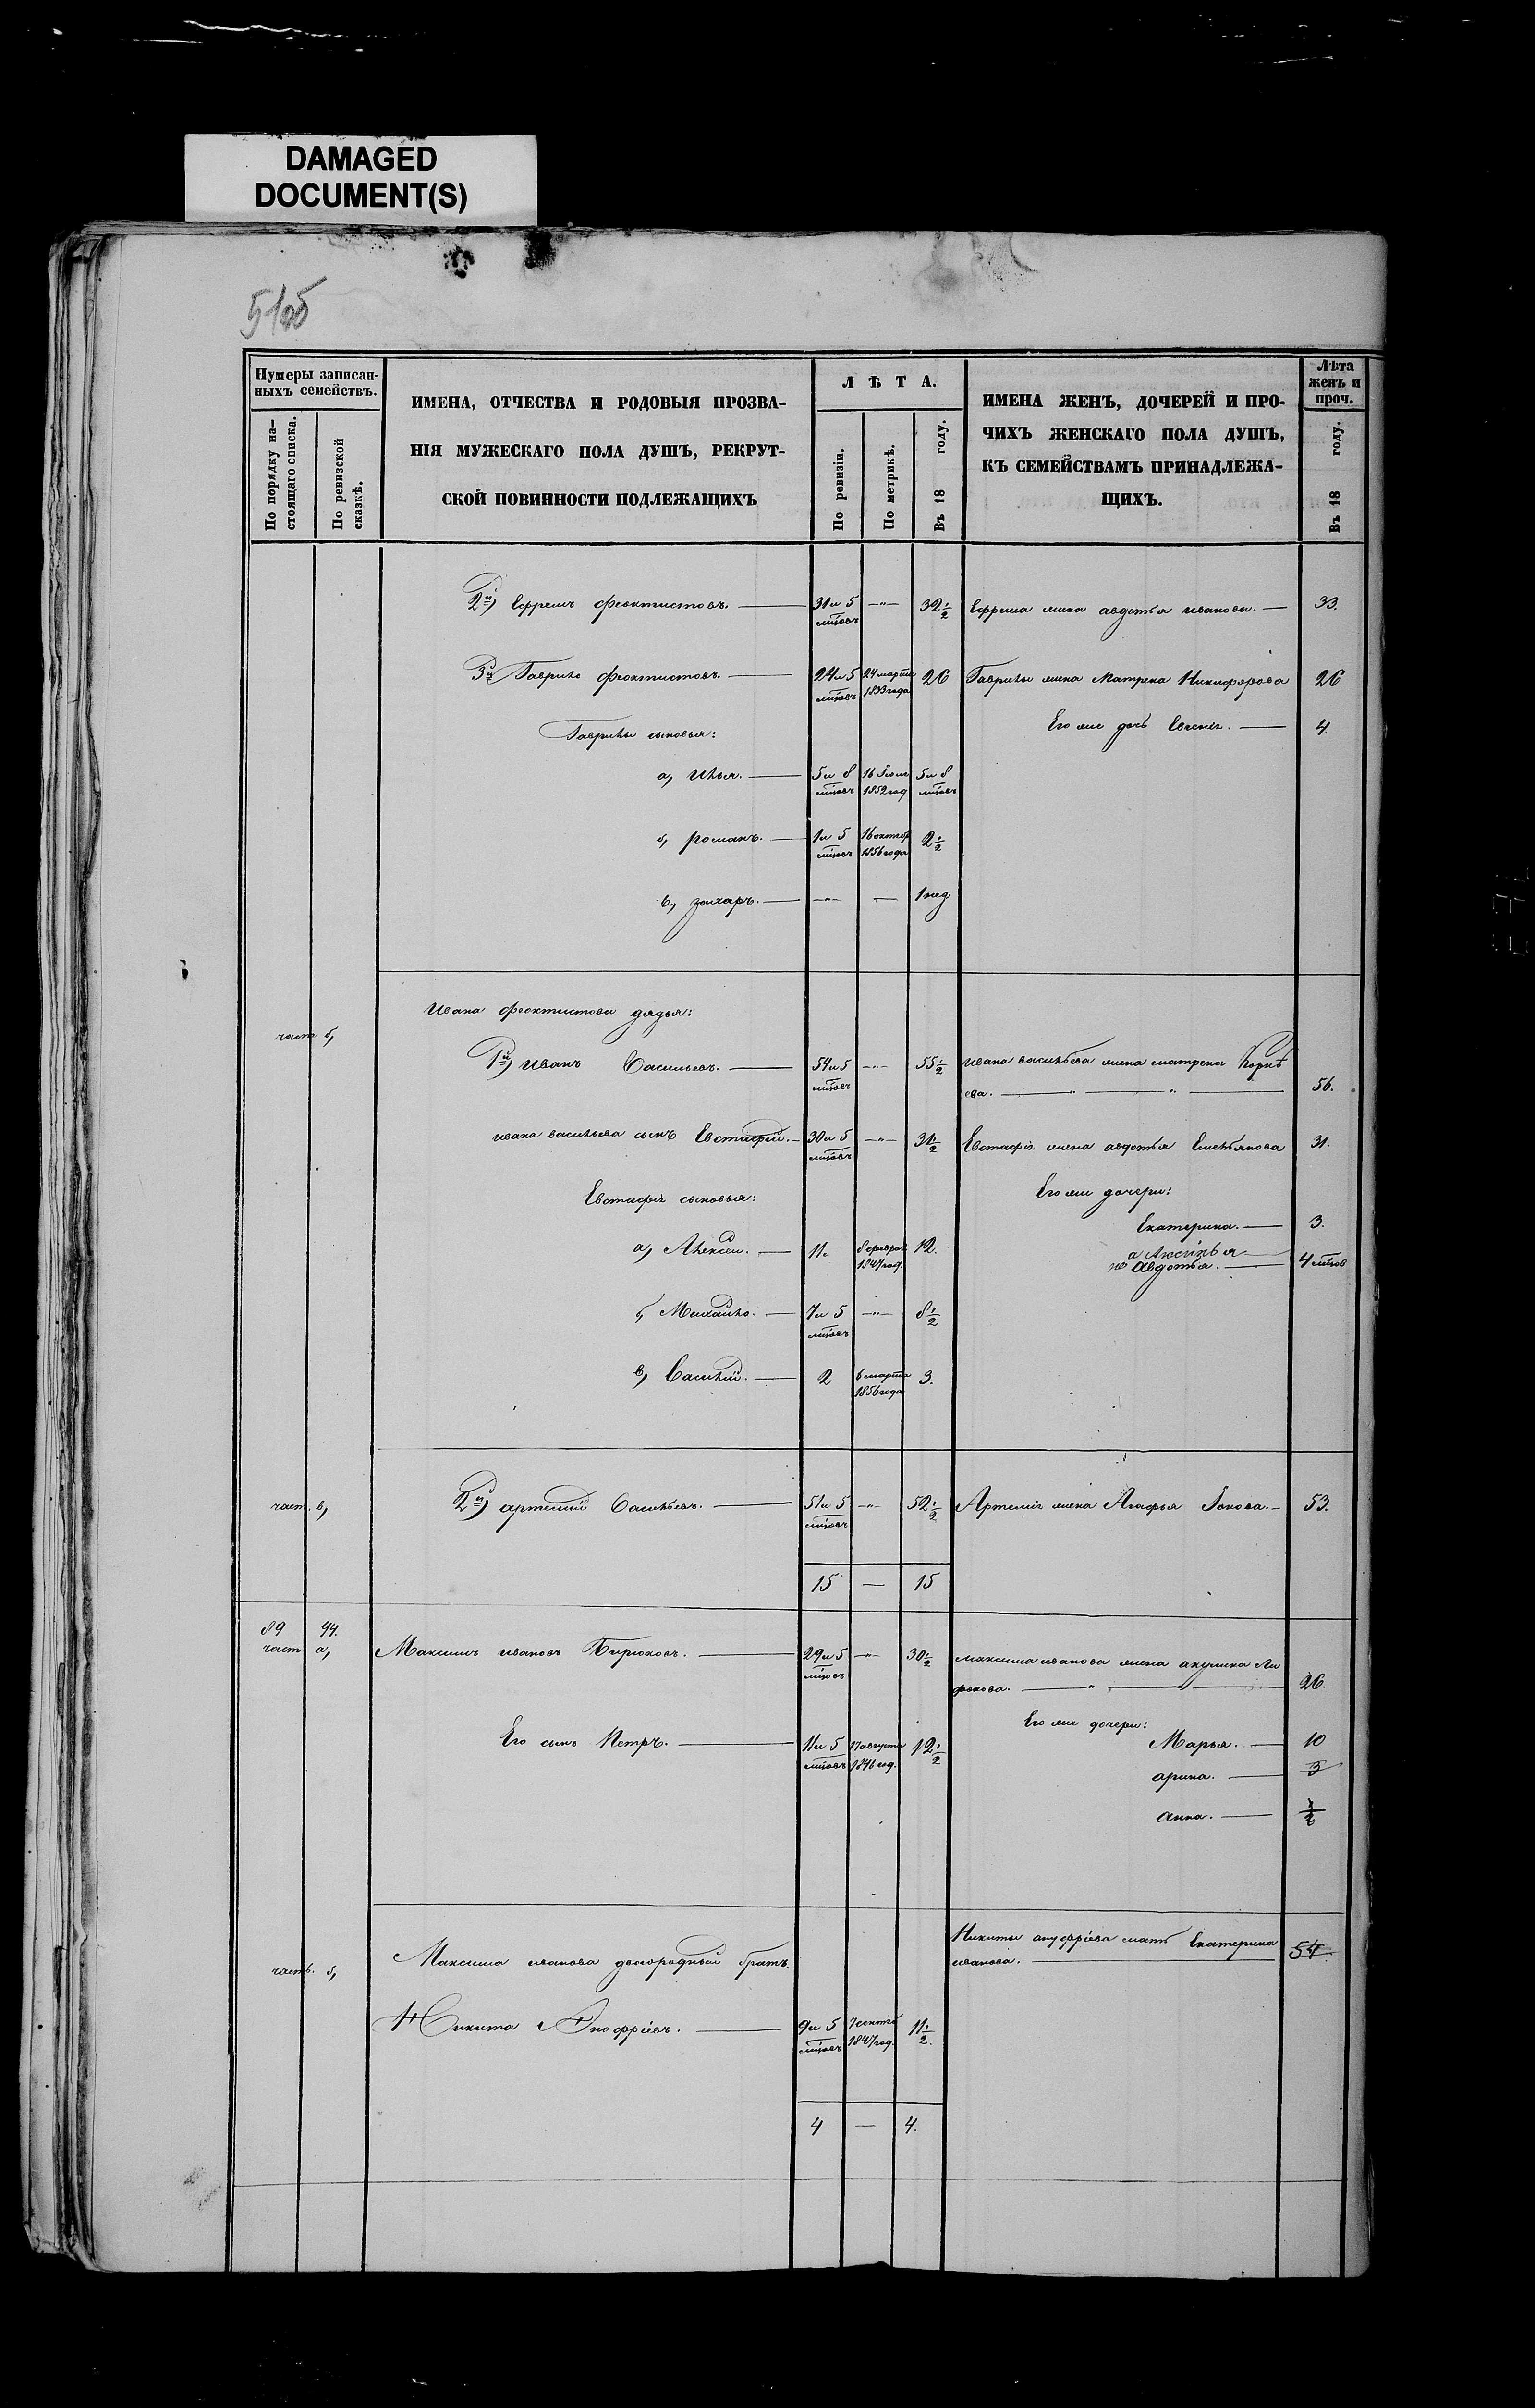 DAMAGED
DOCUMENT(S)
Нумеры записан-
ныхъ семействъ.
По порядку на-
стоящаго списка.
По ревизской
сказкѣ.
ИМЕНА, ОТЧЕСТВА И РОДОВЫЯ ПРОЗВА-
НІЯ МУЖЕСКАГО ПОЛА ДУШЪ, РЕКРУТ-
СКОЙ ПОВИННОСТИ ПОДЛЕЖАЩИХЪ
ЛѢТА.
По ревизіи.
По метрикѣ.
Въ 18 году.
ИМЕНА ЖЕНЪ, ДОЧЕРЕЙ И ПРО-
ЧИХЪ ЖЕНСКАГО ПОЛА ДУШЪ,
КЪ СЕМЕЙСТВАМЪ ПРИНАДЛЕЖА-
ЩИХЪ.
Лѣта
женъ и
проч.
Въ 18 году.
2й) Ефремъ Феоктистовъ. — 31 и 5 мѣсовъ —"— 32 1/2 Ефрема жена авдотья иванова. — 33.
3й Гаврило Феоктистовъ. — 24 и 5 мѣсовъ 24 марта 1833 года 26 Гаврилы жена Матрена Никифорова 26
Его же дочь Евгенія. — 4.
Гаврилы сыновья:
а, Илья. — 5 и 8 мѣсовъ 16 Іюля 1852 год 5 и 8 мѣсовъ
б, романъ. — 1 и 5 мѣсовъ 16 октяб 1856 года 2 1/2
в, захаръ. — —"— — 1 нед
Ивана Феоктистова дядья:
част б,
1й) Иванъ Васильевъ. — 54 и 5 мѣсовъ —"— 55 1/2 Ивана васильева жена матрена Корнѣ
ева. — " — " — 56.
ивана васильева сынъ Евстафій. — 30 и 5 мѣсовъ —"— 31 1/2 Евстафія жена авдотья Емельянова 31.
Евстафія сыновья:
Его же дочери:
Екатерина. — 3.
а, Алексей. — 11. 8 феврал 1847 год. 12.
Аксинья
авдотья. — 4 мѣсов
б, Михайло. — 7 и 5 мѣсовъ —"— 8 1/2
в, Василій. — 2 6 марта 1856 года 3.
част. в,
2й) артемій Васильевъ. — 51 и 5 мѣсовъ —"— 52 1/2 Артемія жена Агафья Іонова. — 53.
15 — 15
89 94.
част а, Максимъ ивановъ Бирюковъ. — 29 и 5 мѣсовъ —"— 30 1/2 максима иванова жена акулина Ли
фонова. — " — 26.
Его же дочери:
Его сынъ Петръ. — 11 и 5 мѣсовъ 17 августа 1846 год. 12 1/2 Марья. — 10
арина. — 3
анна. — 1/2
часть. б, Максима иванова двоюродный братъ.
Никиты ануфріева мать Екатерина
иванова. — 54.
Никита Анофріевъ. — 9 и 5 мѣсовъ 1847 год. 11 1/2.
4 — 4.